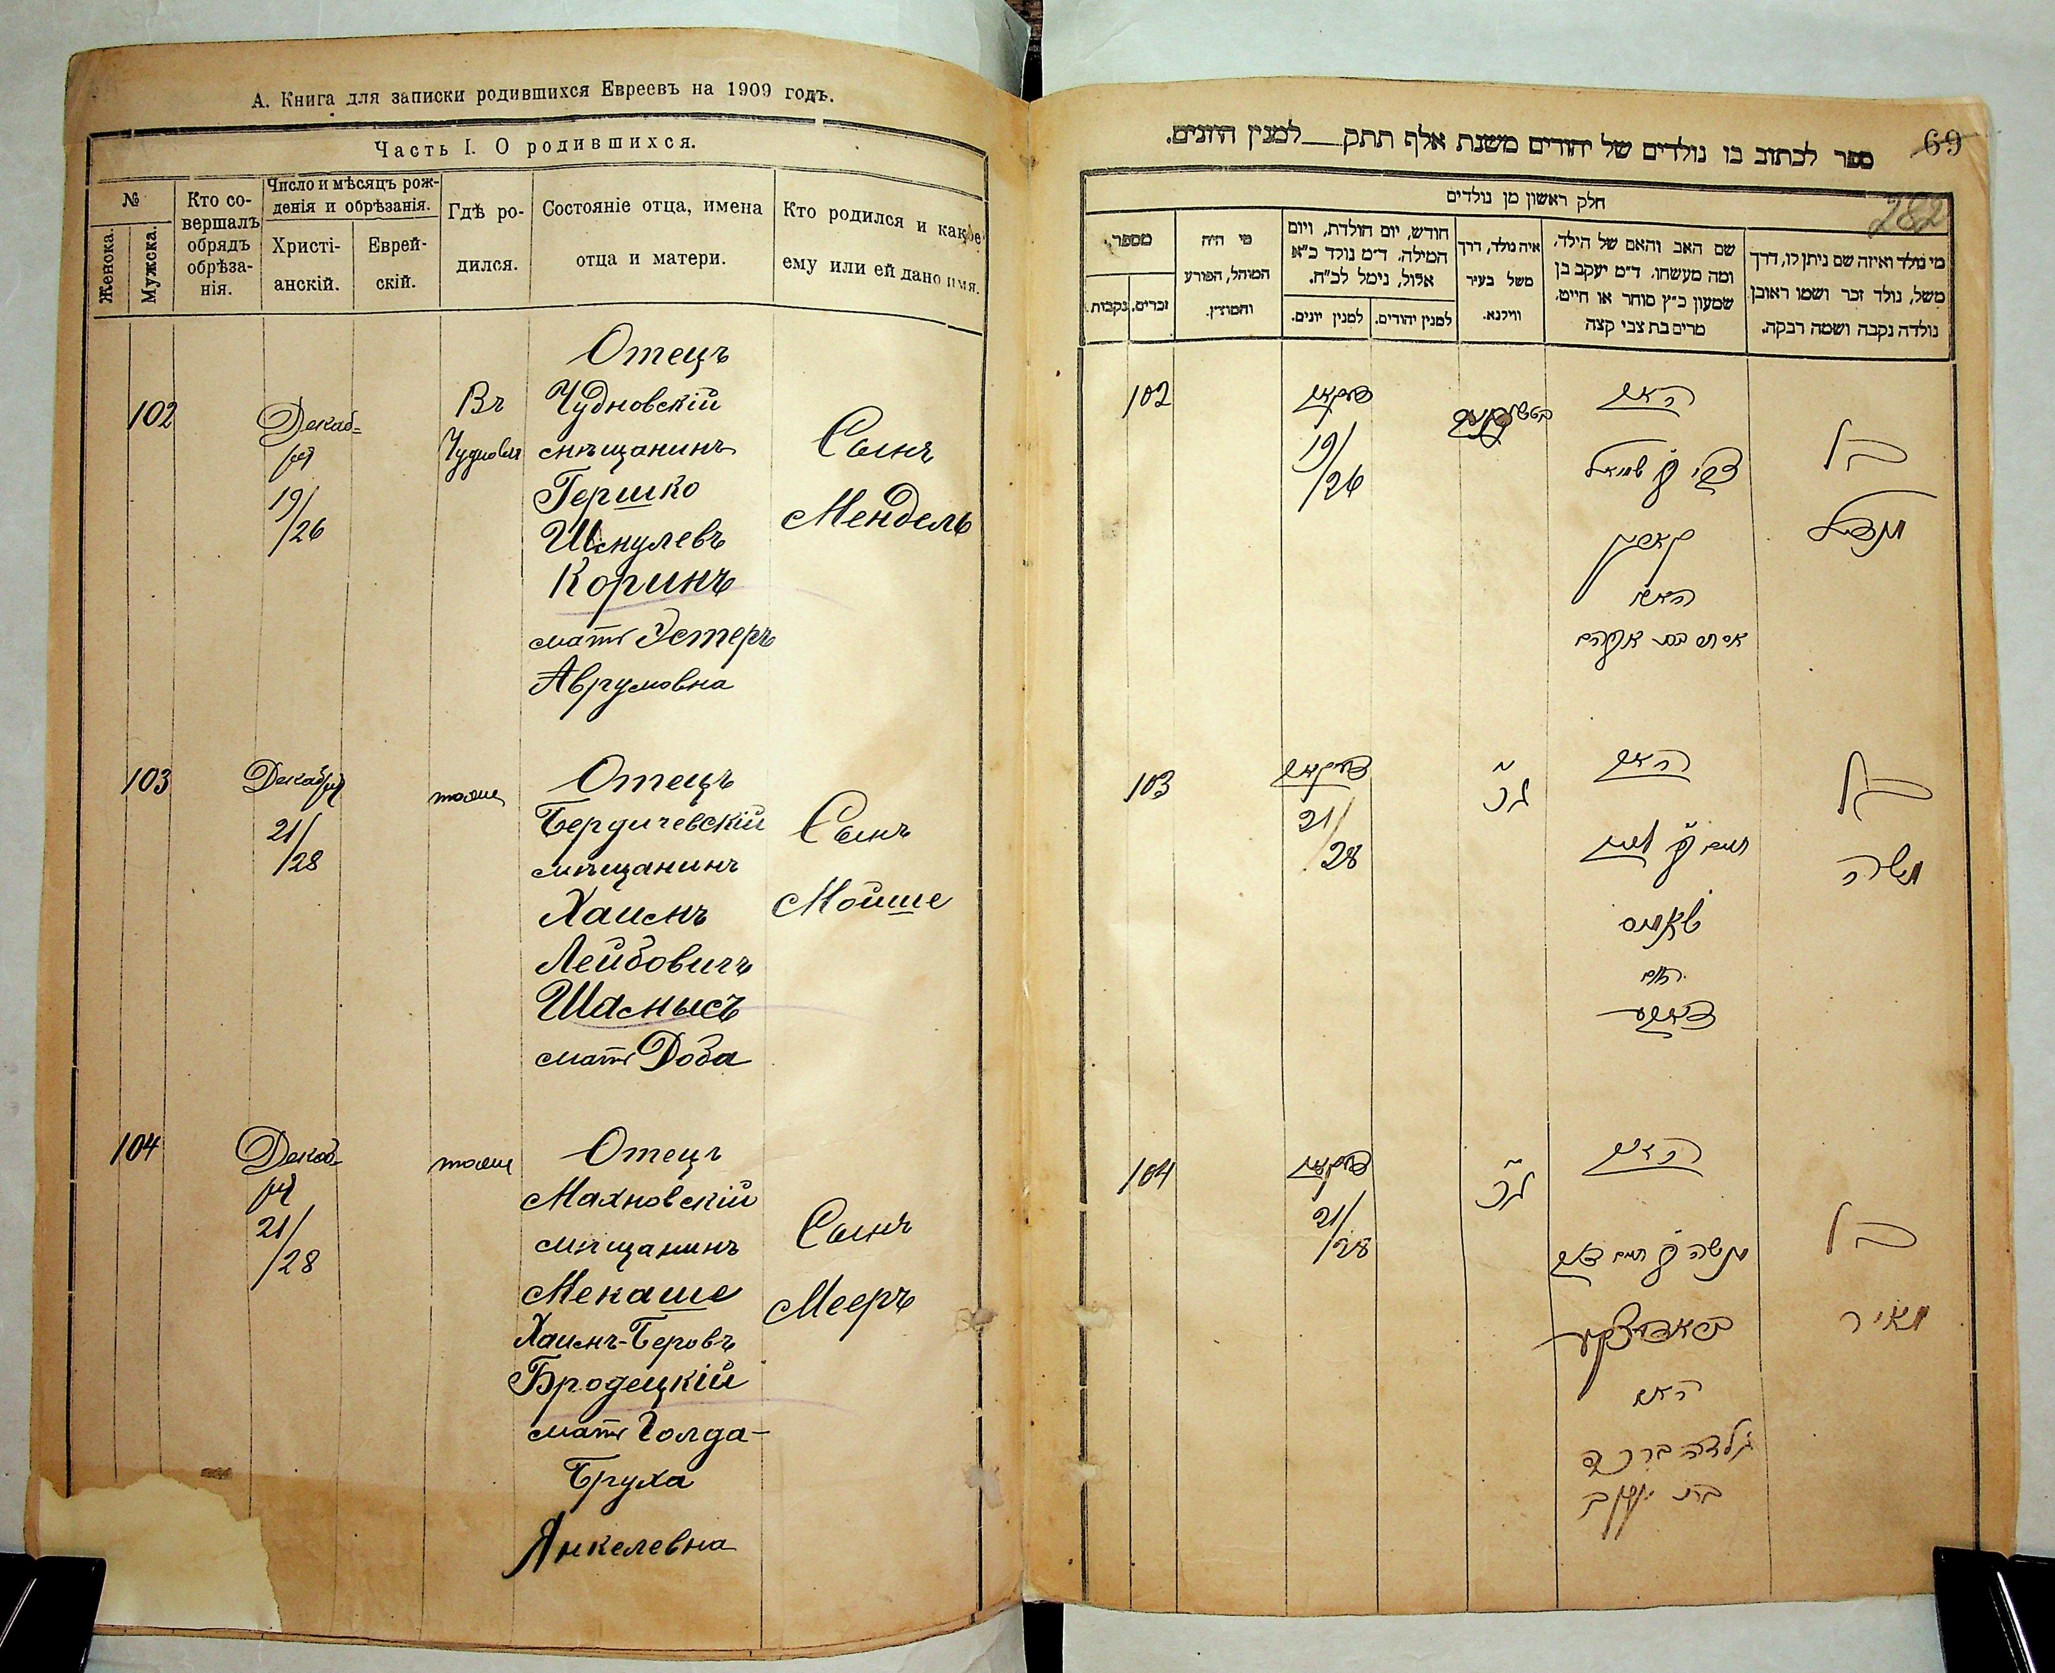 А. Книга для записки родившихся Евреевъ на 1909 годъ.
Часть I. О родившихся.
№
Женска.
Мужска.
Кто со-
вершалъ
обрядъ
обрѣза-
нія.
Число и мѣсяцъ рож-
денія и обрѣзанія.
Христі-
анскій.
Еврей-
скій.
Гдѣ ро-
дился.
Состояніе отца, имена
отца и матери.
Кто родился и какое
ему или ей дано имя.
102
Декаб=
ря
19/26
Въ
Чудновѣ
Отецъ
Чудновскій
мѣщанинъ
Гершко
Шмулевъ
Коринъ
мать Эстеръ
Аврумовна
Сынъ
Мендель
103
Декабря
21/28
тоже
Отецъ
Бердичевскій
мѣщанинъ
Хаимъ
Лейбовичъ
Шамысъ
мать Доба
Сынъ
Мойше
104
Декаб-
ря
21/28
тоже
Отецъ
Махновскій
мѣщанинъ
Мекаше
Хаимъ-Беровъ
Бродецкій
мать Голда-
Бруха
Янкелевна
Сынъ
Мееръ
69
282
ספר לכתוב בו נולדים של יהודים משנת אלף תתק___למנין היונים.
חלק ראשון מן נולדים
מספר
זכרים.
נקבות.
מי היה
המוהל, הפורע
והמוצץ.
חודש, יום הולדת, ויום
המילה. ד"מ נולד כ"א
אלול, נימל לכ"ח.
למנין יונים.
למנין יהודים.
איה נולד, דרך
משל בעיר
ווילנא.
שם האב והאם של הילד,
ומה מעשהו. ד"מ יעקב בן
שמעון כ"ץ סוחר או חייט,
מרים בת צבי קצה
מי נולד ואיזה שם ניתן לו, דרך
משל, נולד זכר ושמו ראובן
נולדה נקבה ושמה רבקה.
102
19/26
האב
צבי בן שמואל
קארין
האם
אסתר בת אברהם
בן
מענדיל
103
21/28
האב
חיים בן ליב
שאמיס
האם
דאבע
בן
משה
104
21/28
האב
מנשה בן חיים בער
בראדעצקע
האם
גולדה ברכה
בת יעקב
בן
מאיר